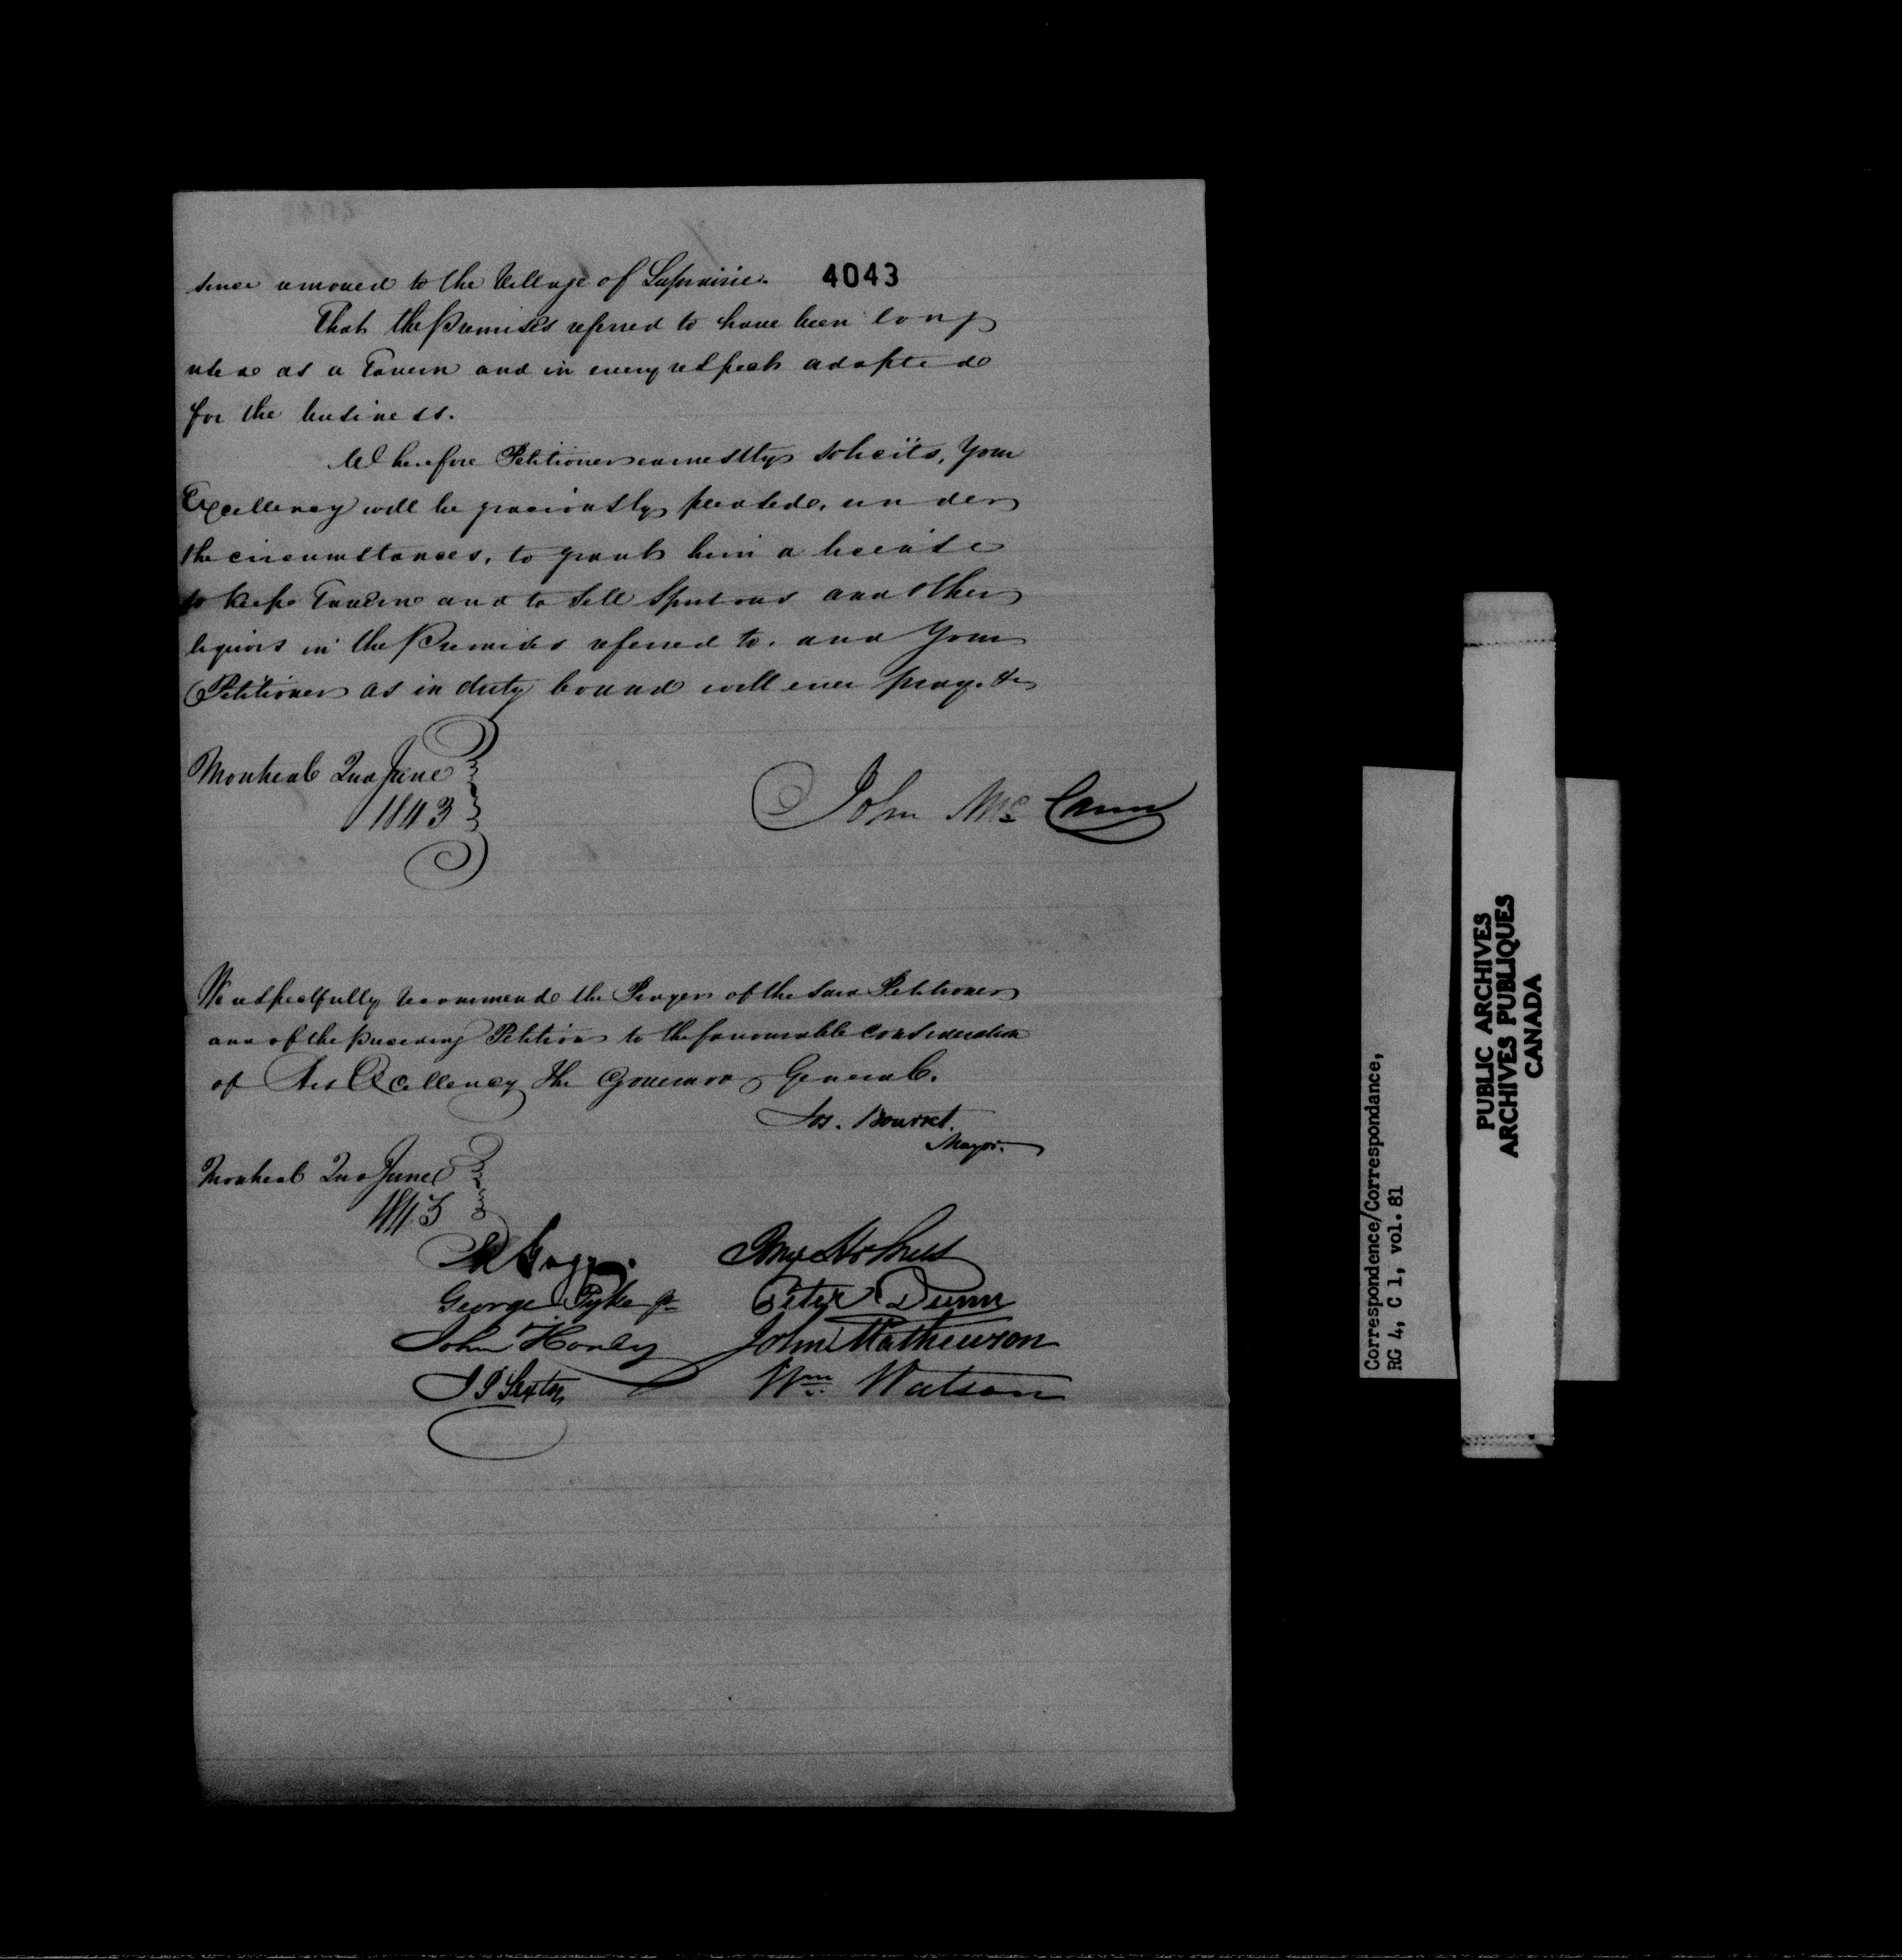 since removed to the Village of Laprairie. 4043
That the Premises referred to have been long
used as a Tavern and in every respect adapted
for the business.
Wherefore Petitioner earnestly solicits, Your
Excellency will be graciously pleased, under
the circumstances, to grant him a licence
to keep Tavern and to sell Spirtous and other
liquors in the Premises referred to. and Your
Petitioner as in duty bound will ever pray. &c
Montreal 2nd June
1843
John McCann
We respectfully recommend the Prayer of the said Petitioner
and of the preceding Petition to the favourable consideration
of His Excellency The Governor General.
Jos. Bourret.
Mayor.
Montreal 2nd June
1843
Benj Holmes
George Pyke Jr Peter Dunn
John Mathewson
J P Sexton Wm Watson
Correspondence/Correspondance,
RG 4, C 1, vol. 81
PUBLIC ARCHIVES
ARCHIVES PUBLIQUES
CANADA